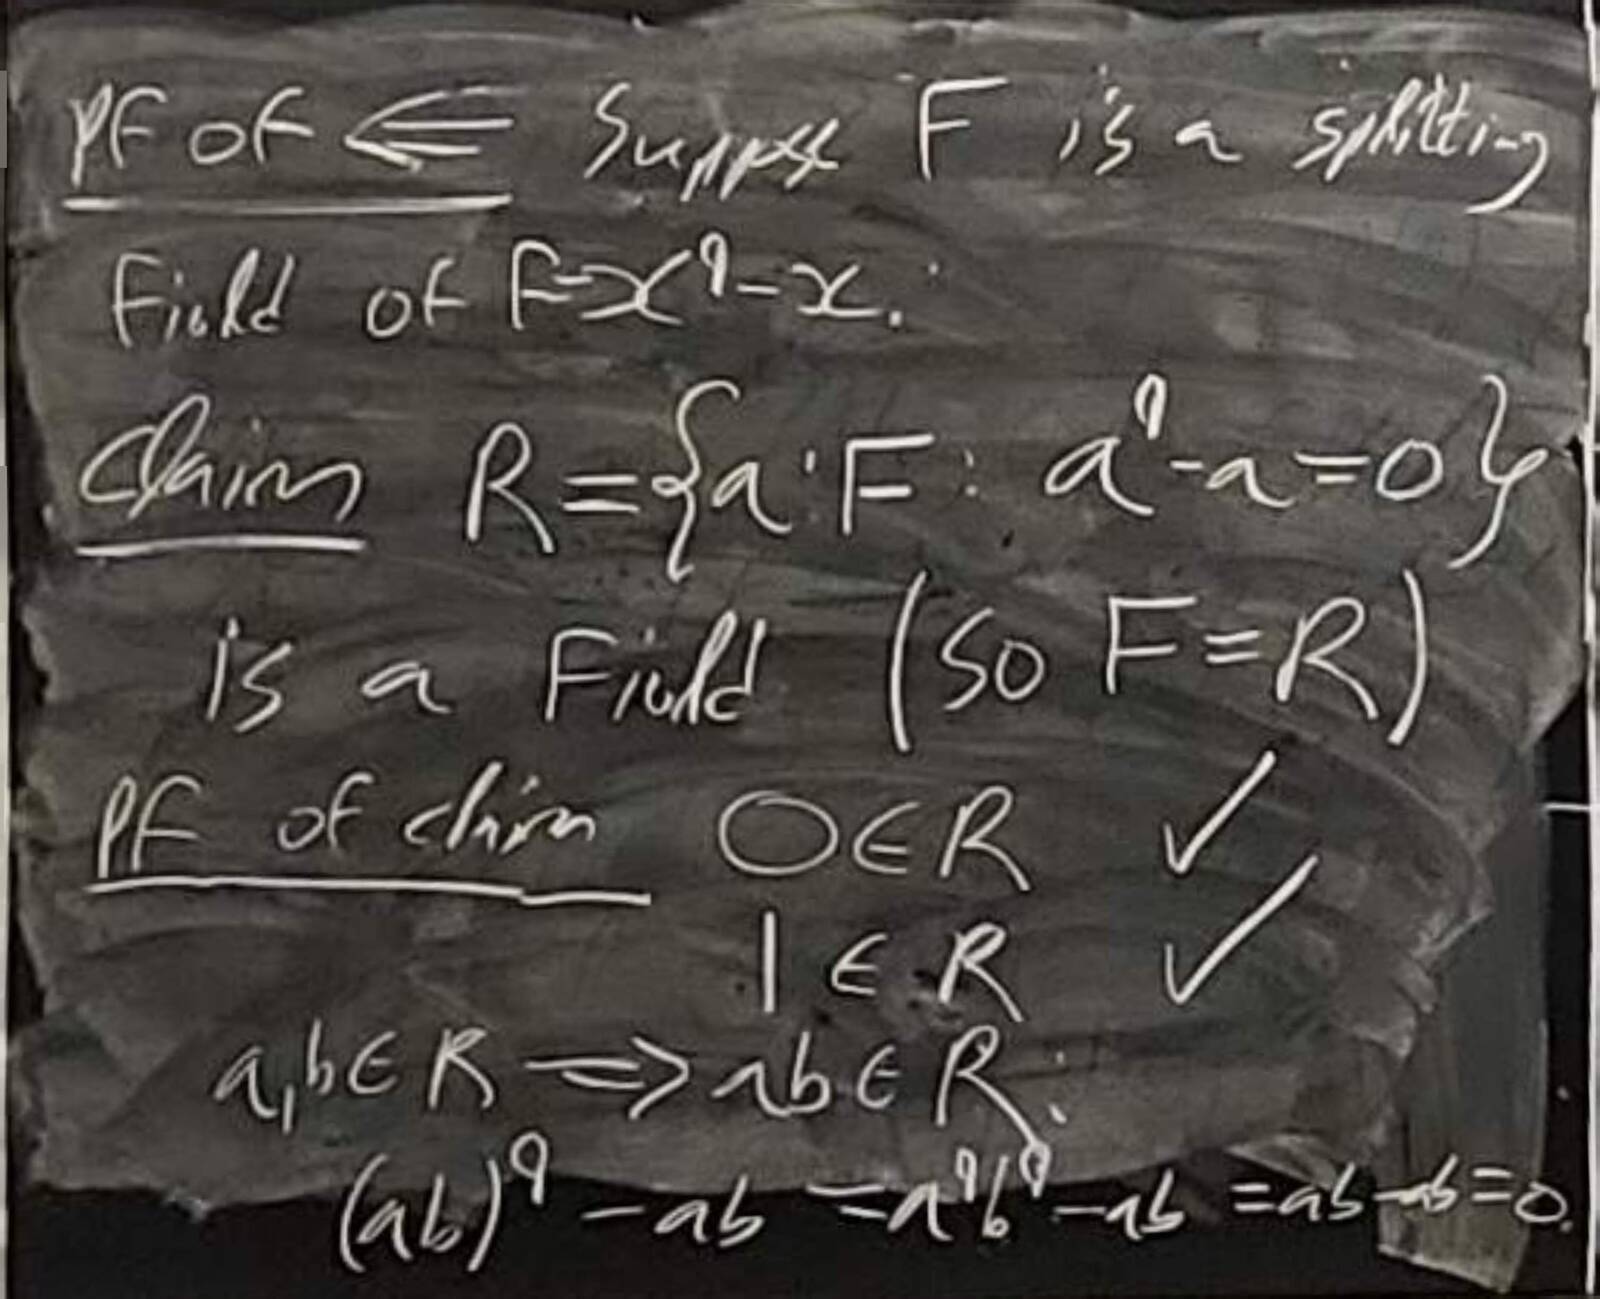 PF OF ⇐ Suppose F is a splitting
Field of F=x^q-x.
Claim R={a∈F: a^q-a=0}
is a Field (so F=R)
PF of claim 0∈R ✓
1∈R ✓
a,b∈R ⇒ ab∈R:
(ab)^q-ab = a^q b^q-ab = ab-ab=0.